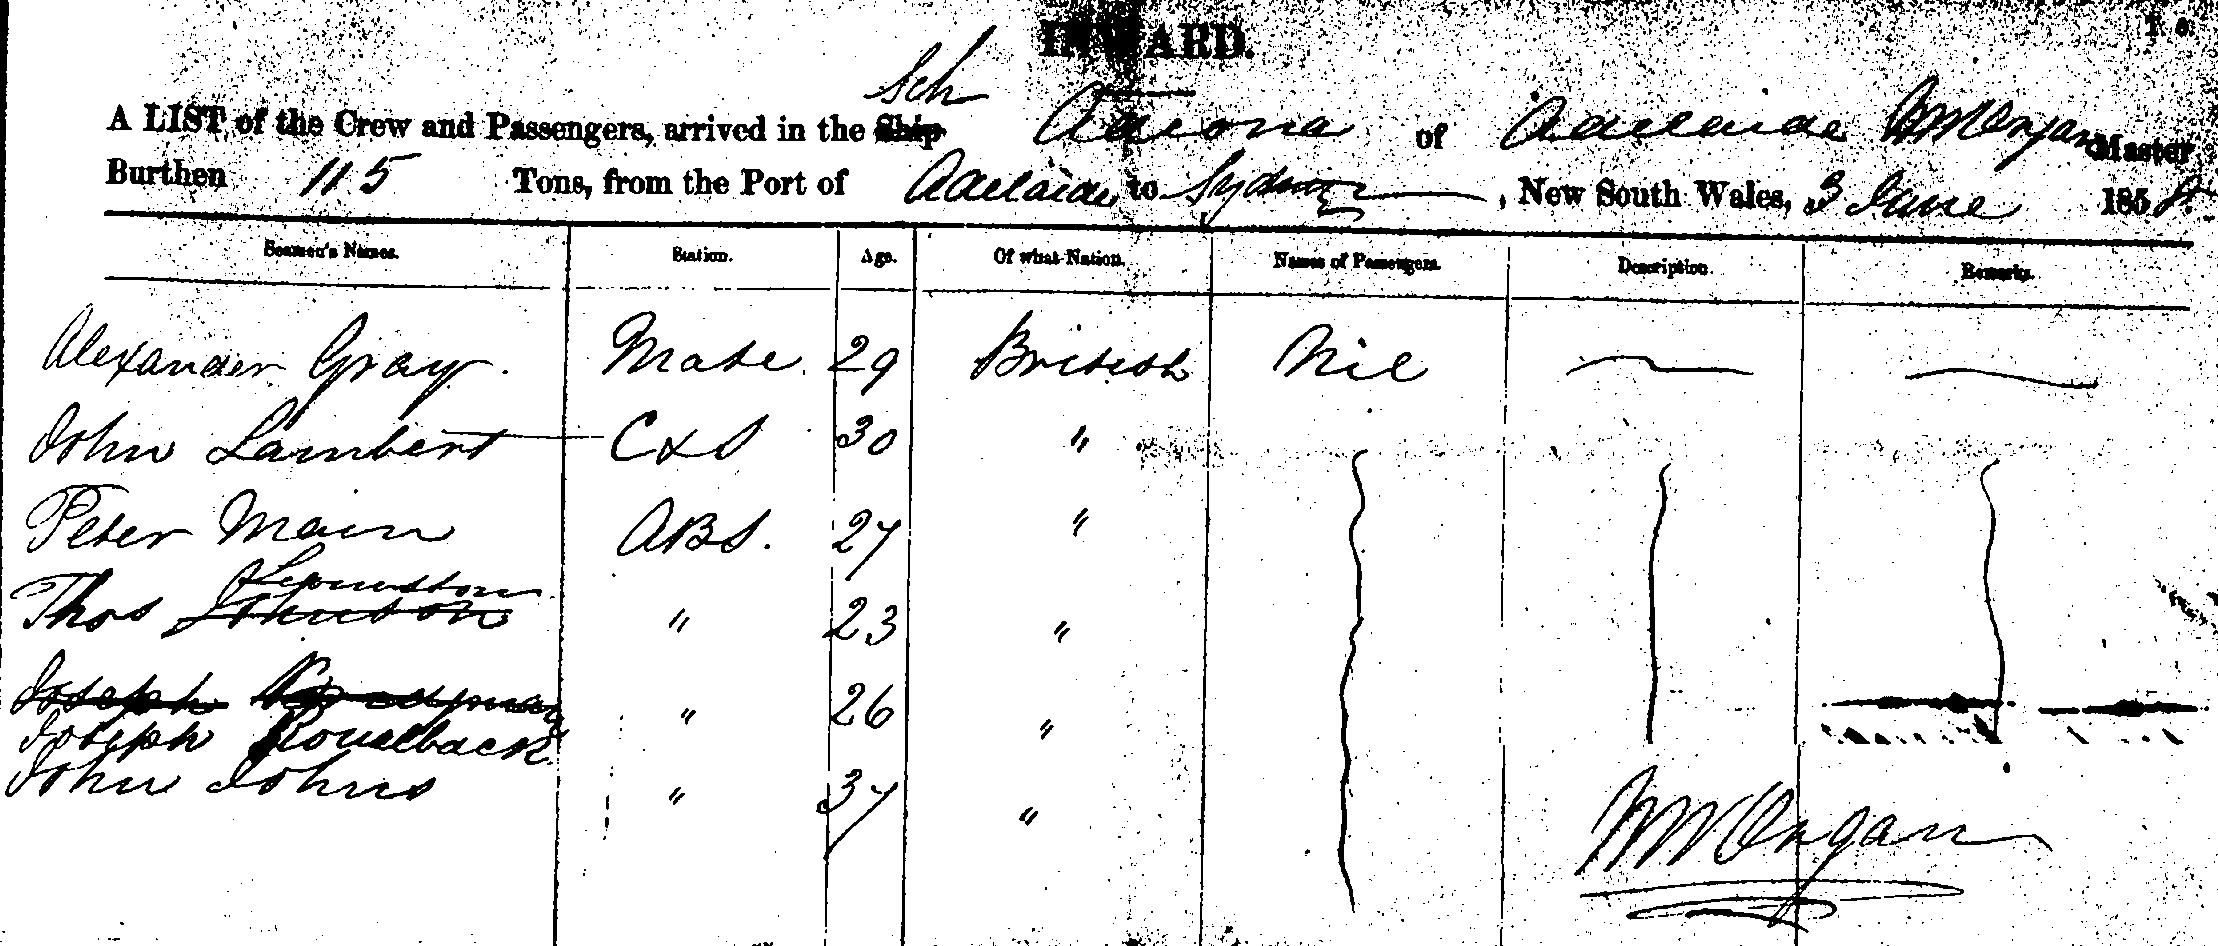 INWARD.
A LIST of the Crew and Passengers, arrived in the Ship Sch of Adelaide Master
Burthen 115 Tons, from the Port of Adelaide to Sydney, New South Wales, 3 June 1858.
Seamen's Names. Station. Age. Of what Nation. Names of Passengers. Description. Remarks.
Alexander Gray. Mate. 29 British Nil
John Lambert C&S 30 "
Peter Main ABS. 27 "
Thos Johnson " 23 "
Joseph " 26 "
Joseph
John Johns " 37 "